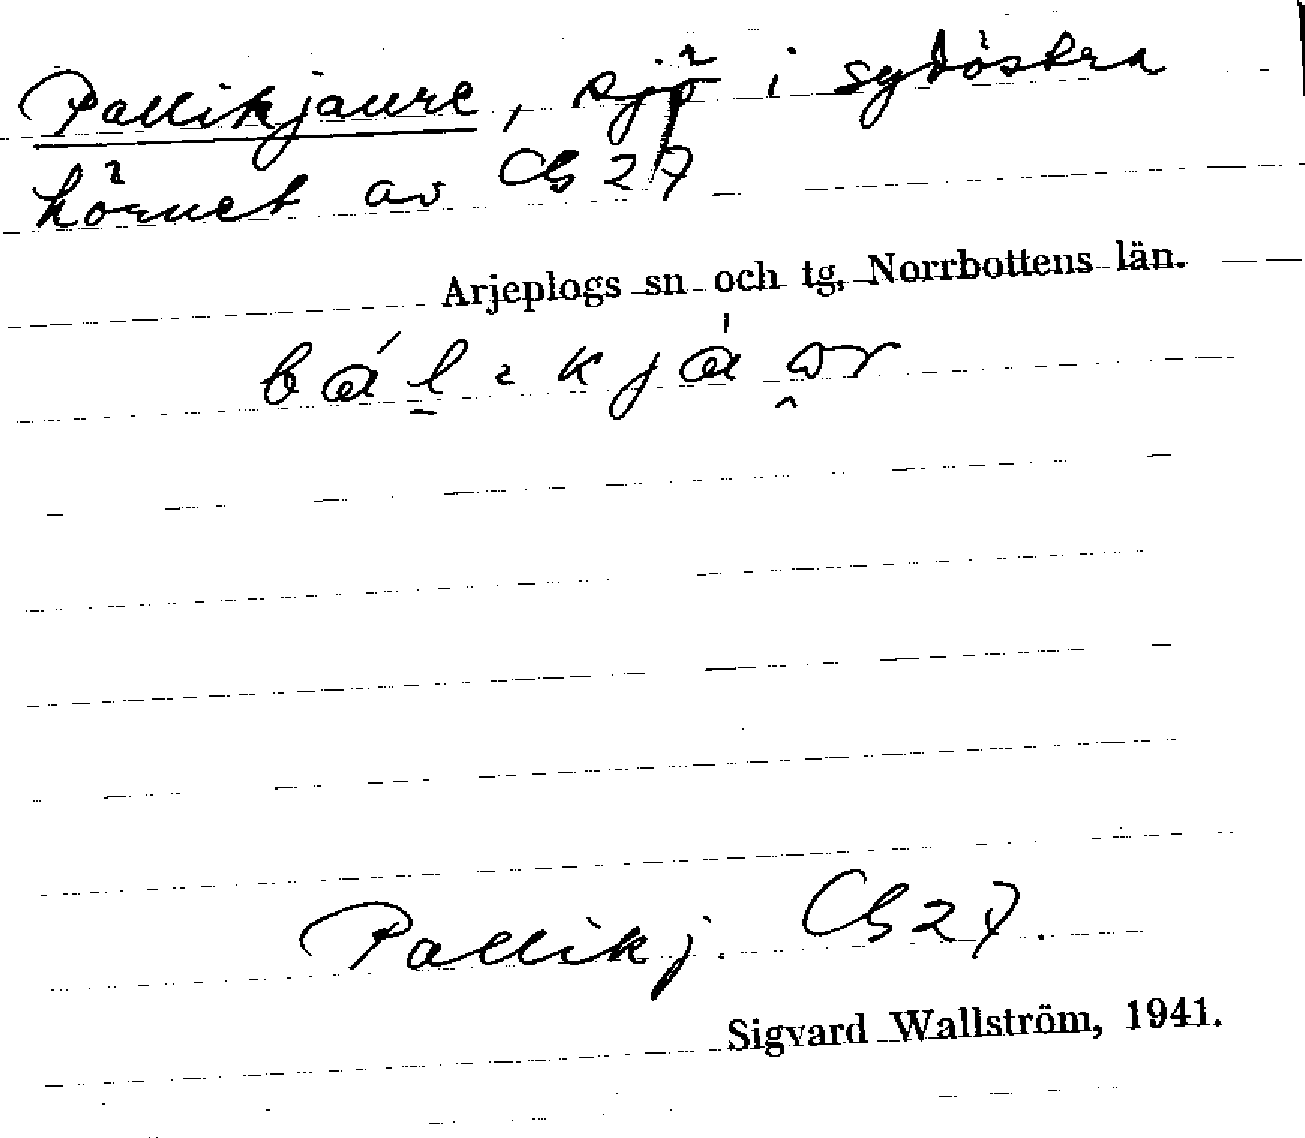 Pallikjaure, sjö i sydöstra
hörnet av Cb 27
Arjeplogs sn och tg, Norrbottens län.
Pallikj. Cb 27.
Sigvard Wallström, 1941.